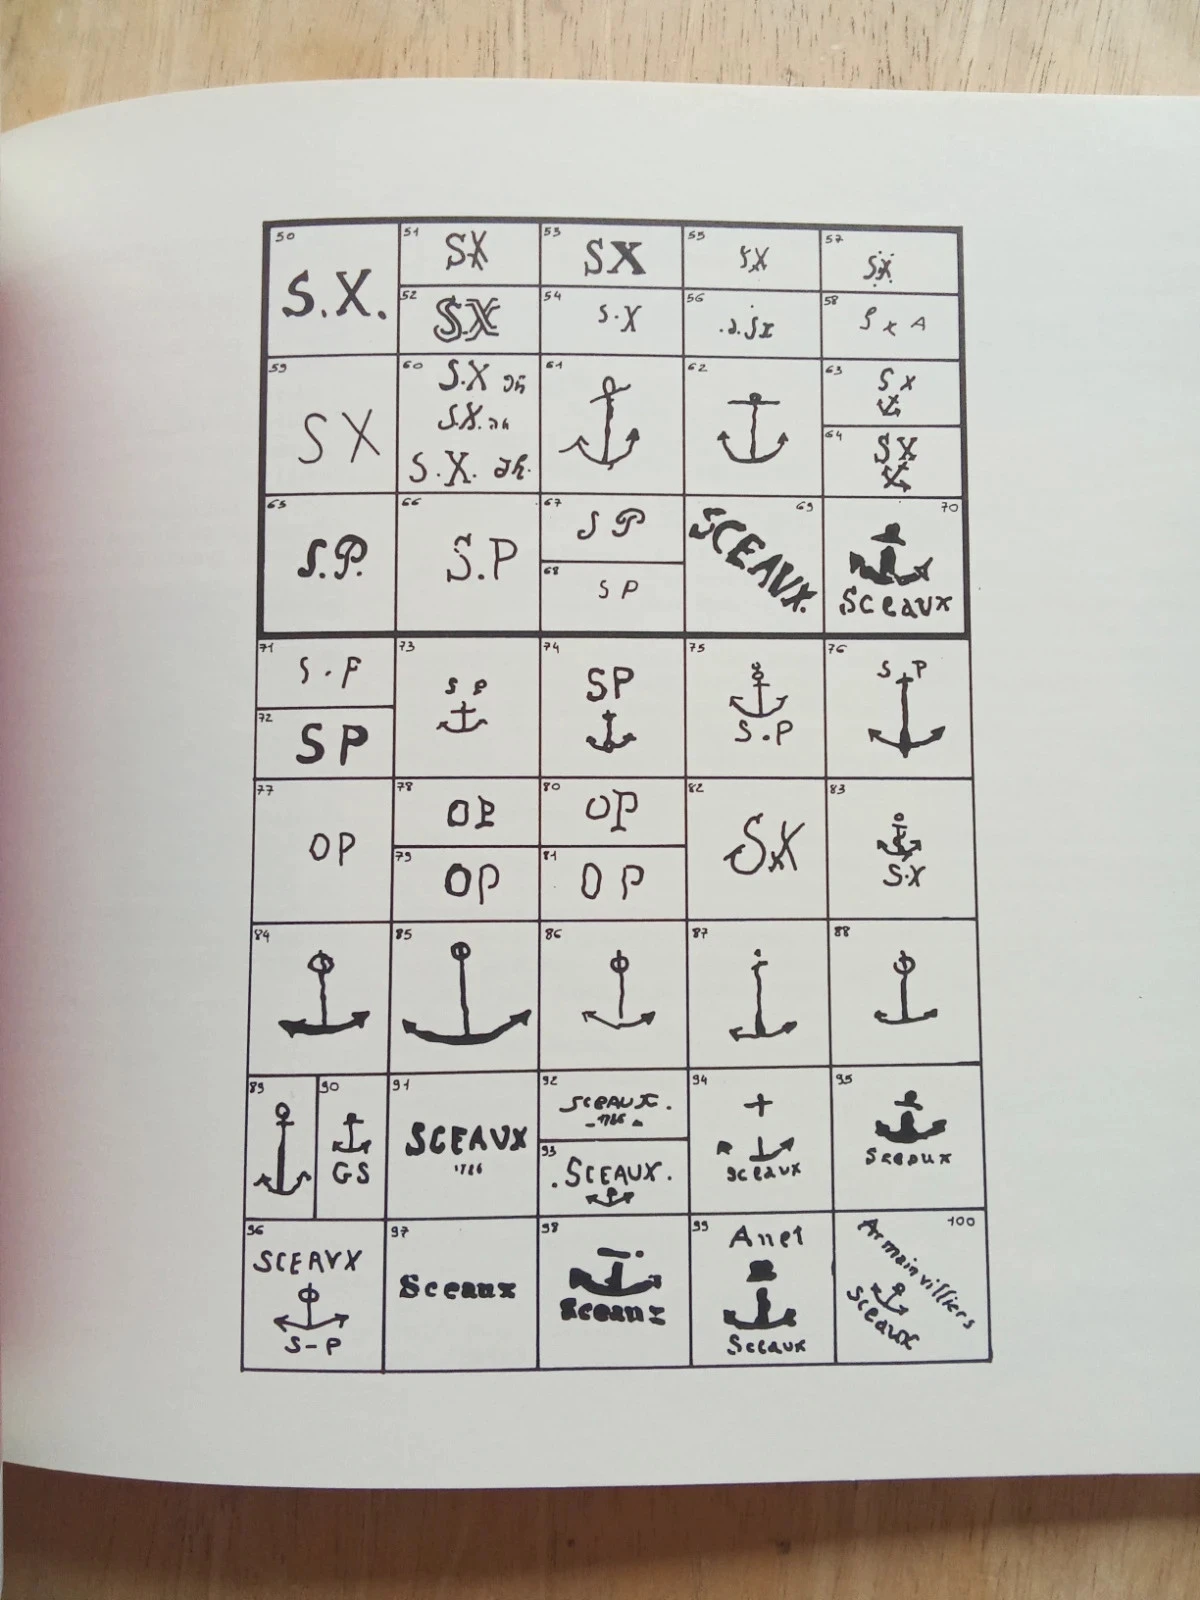 50
S.X.
51
SX
52
SX
53
SX
54
S.X
55
SX
56
57
SX
58
S x A
59
SX
60
S.X
S.X.
S.X.
61
62
63
S X
64
SX
65
S.P.
66
S.P
67
S P
68
S P
69
SCEAUX.
70
Sceaux
71
S.P
72
SP
73
S P
74
SP
75
S.P
76
S P
77
OP
78
OP
79
OP
80
OP
81
O P
82
SX
83
S.X
84
85
86
87
88
89
90
GS
91
SCEAUX
92
SCEAUX.
93
.SCEAUX.
94
Sceaux
95
Sceaux
96
SCEAVX
S-P
97
Sceaux
98
Sceaux
99
Anet
Sceaux
100
Armainvilliers
Sceaux